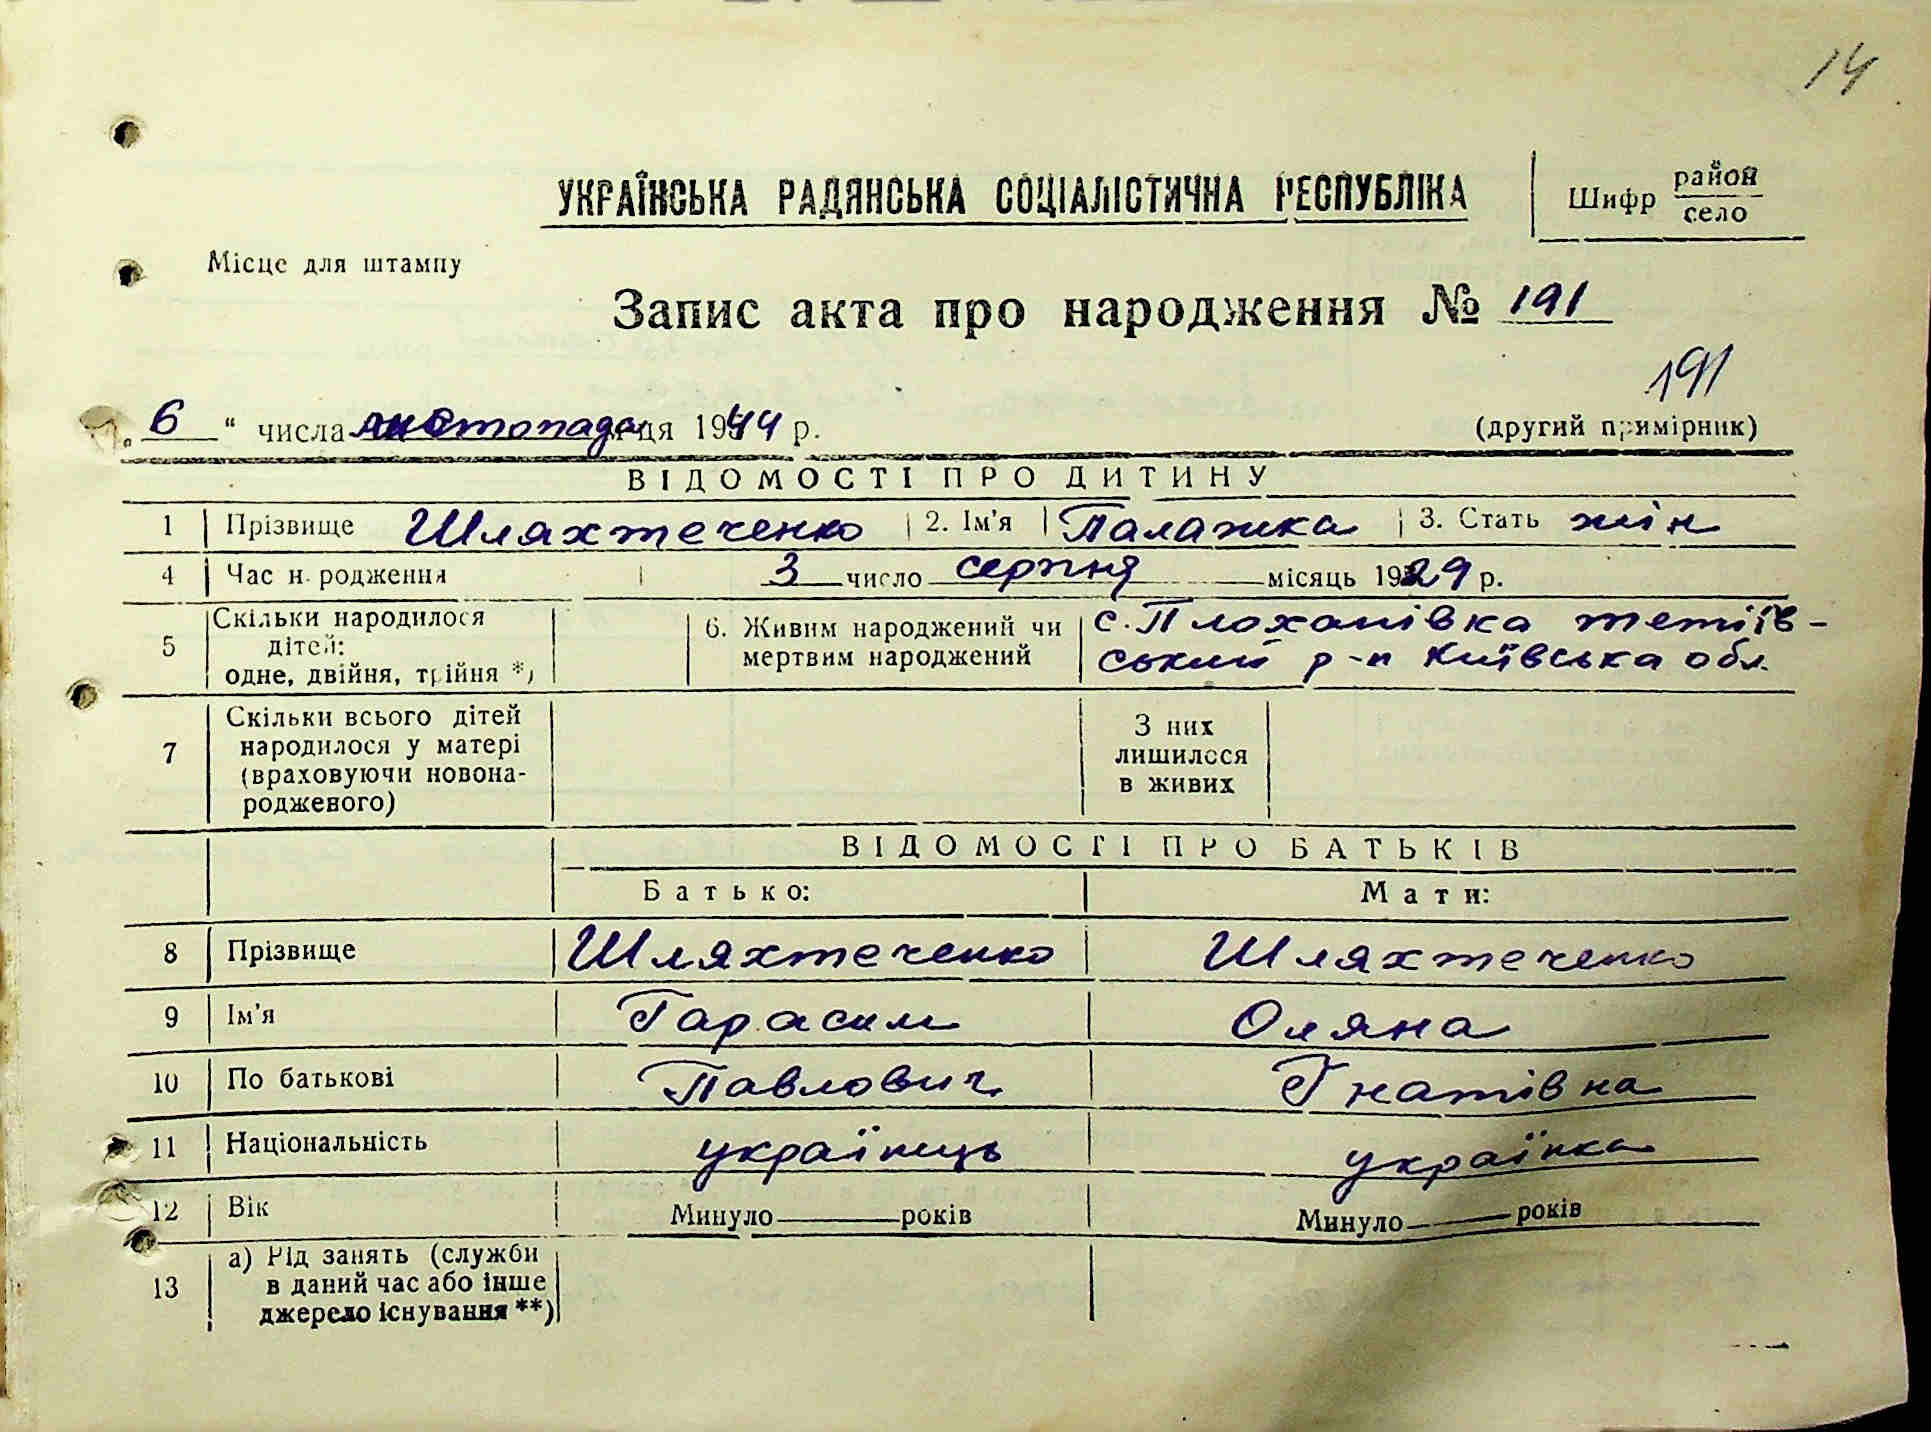 14
УКРАЇНСЬКА РАДЯНСЬКА СОЦІАЛІСТИЧНА РЕСПУБЛІКА
Шифр район
село
Місце для штампу
Запис акта про народження № 191
191
„ 6 “ числа листопада 1944 р.
(другий примірник)
ВІДОМОСТІ ПРО ДИТИНУ
1 Прізвище Шляхтеченко 2. Ім'я Палажка 3. Стать жін
4 Час народження 3 число серпня місяць 1929 р.
5 Скільки народилося дітей: одне, двійня, трійня *)
6. Живим народжений чи мертвим народжений
с. Плоханівка тетіїв-
ський р-н Київська обл.
7 Скільки всього дітей народилося у матері (враховуючи новонародженого)
З них лишилося в живих
ВІДОМОСТІ ПРО БАТЬКІВ
Батько: Мати:
8 Прізвище Шляхтеченко Шляхтеченко
9 Ім'я Гарасим Оляна
10 По батькові Павлович Гнатівна
11 Національність українець українка
12 Вік Минуло років Минуло років
13 а) Рід занять (служби в даний час або інше джерело існування **)